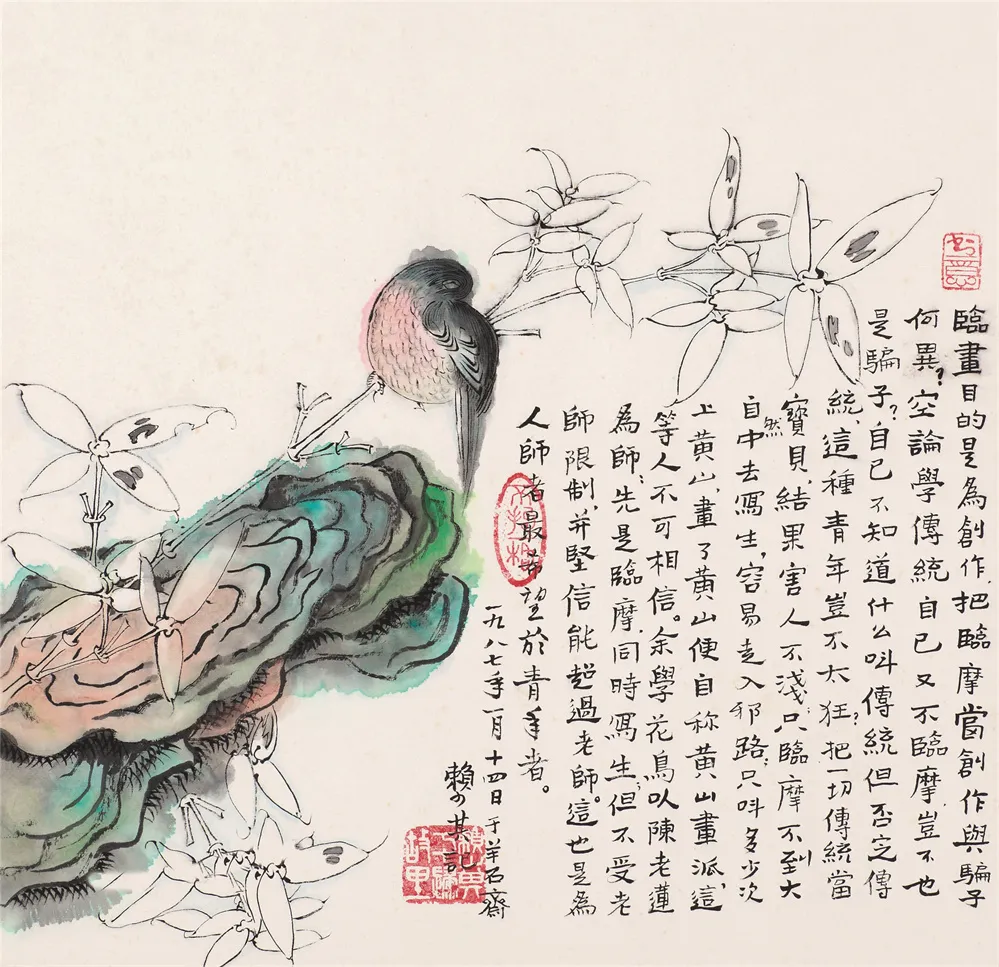 臨畫目的是為創作，把臨摩當創作與騙子
何異？空論學傳統自己又不臨摩，豈不也
是騙子？自己不知道什么叫傳統但否定傳
統，這種青年豈不太狂？把一切傳統當
寶貝，結果害人不淺；只臨摩不到大
自然中去寫生，容易走入邪路；只叫多少次
上黄山，畫了黄山便自称黄山畫派，這
等人不可相信。余學花鳥以陳老蓮
為師；先是臨摩，同時寫生；但不受老
師限制，并堅信能超過老師。這也是為
人師者最希望於青年者。
一九八七年一月十四日于羊石齋
賴少其記